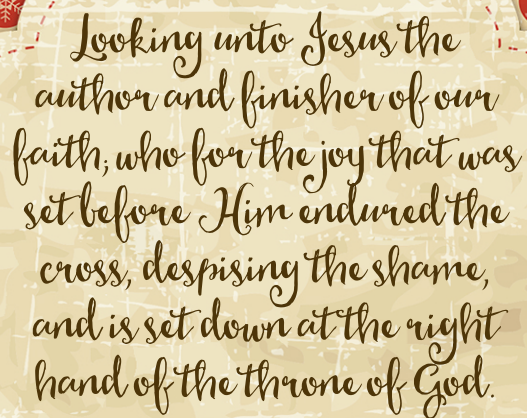 Looking unto Jesus the
author and finisher of our
faith; who for the joy that was
set before Him endured the
cross, despising the shame,
and is set down at the right
hand of the throne of God.